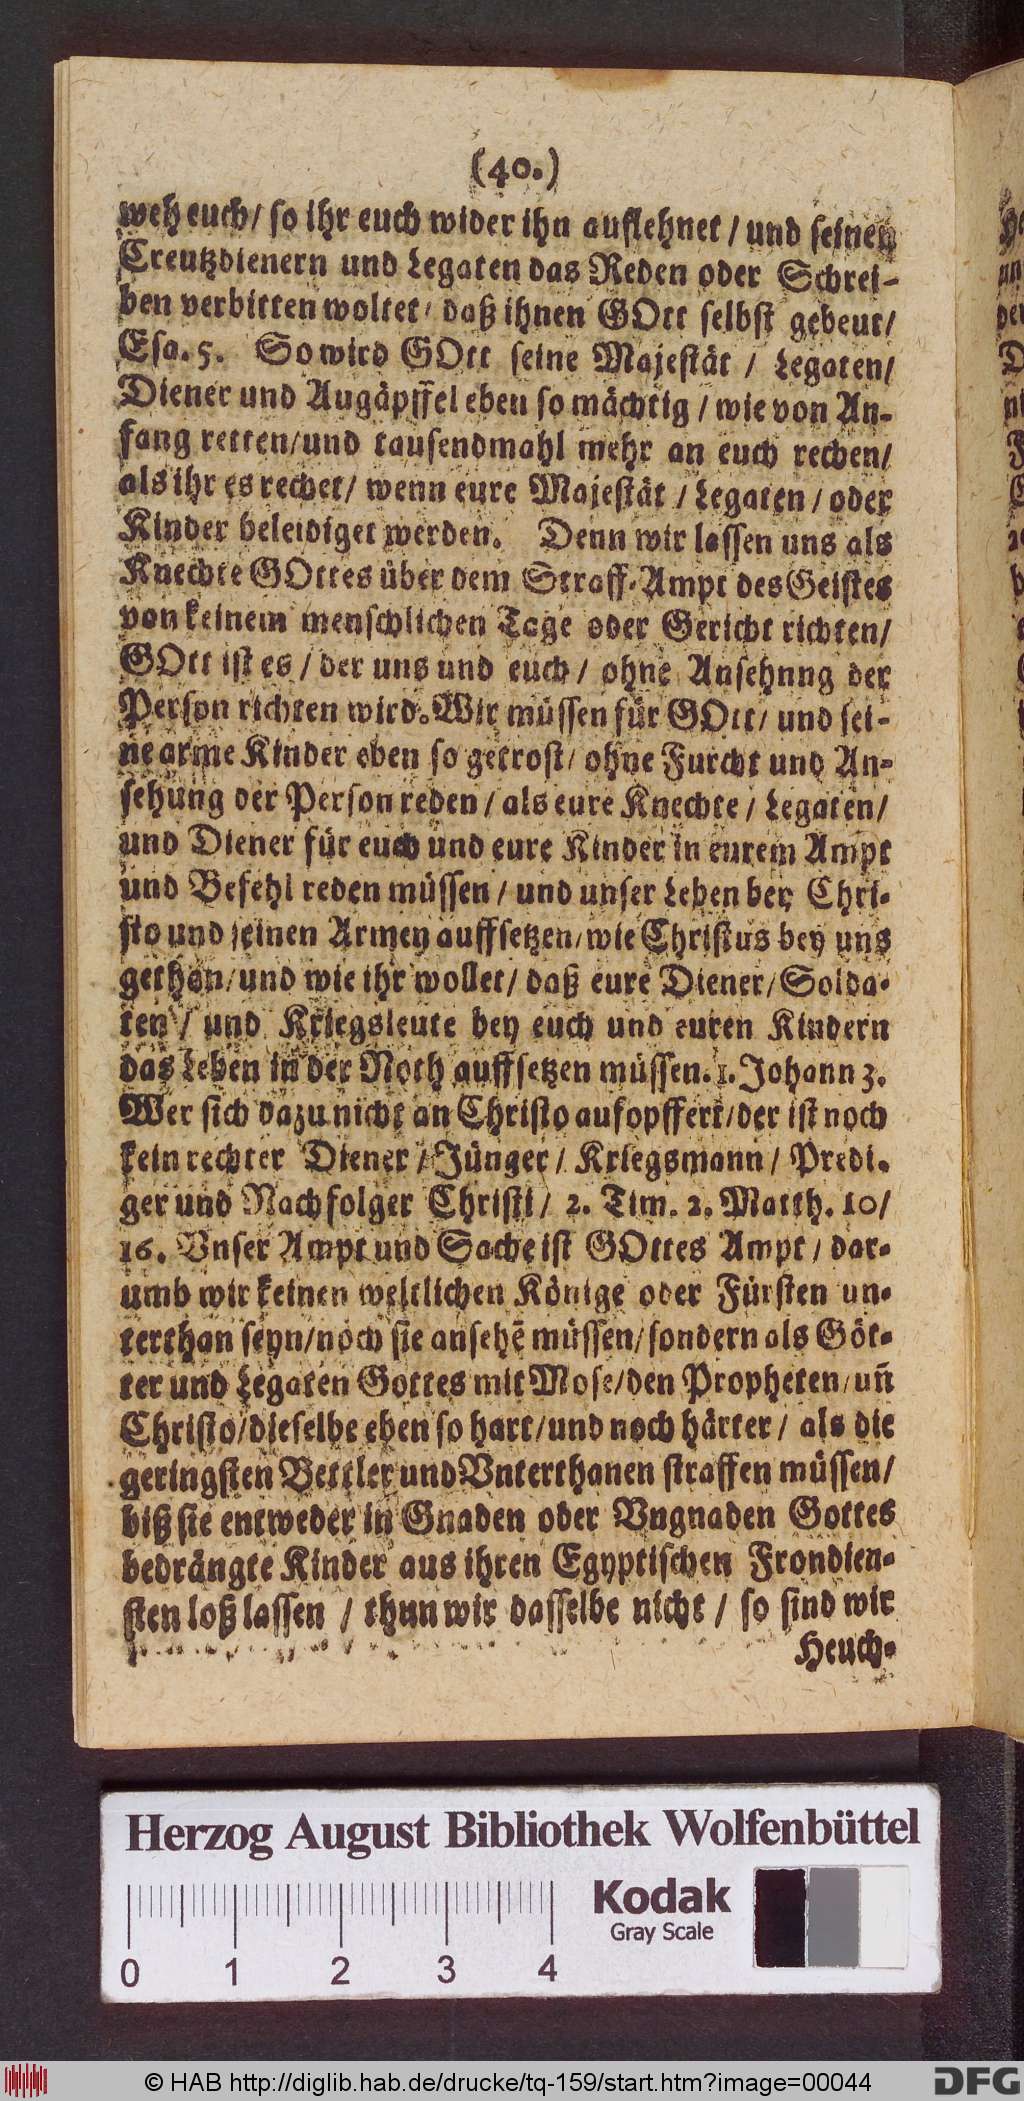 (40.)
weh euch/ so ihr euch wider ihn auflehnet / und seinen
Creutzdienern und Legaten das Reden oder Schrei-
ben verbitten woltet/ daß ihnen GOtt selbst gebeut/
Esa. 5. So wird GOtt seine Majestät / Legaten/
Diener und Augäpffel eben so mächtig / wie von An-
fang retten/und tausendmahl mehr an euch rechen/
als ihr es rechet/ wenn eure Majestät / Legaten / oder
Kinder beleidiget werden. Denn wir lassen uns als
Knechte GOttes über dem Straff-Ampt des Geistes
von keinem menschlichen Tage oder Gericht richten/
GOtt ist es / der uns und euch / ohne Ansehnng der
Person richten wird. Wir müssen für GOtt/ und sei-
ne arme Kinder eben so getrost/ ohne Furcht und An-
sehung der Person reden / als eure Knechte / Legaten/
und Diener für euch und eure Kinder in eurem Ampt
und Befehl reden müssen / und unser Leben bey Chri-
sto und seinen Armen auffsetzen/wie Christus bey uns
gethan/und wie ihr wollet/ daß eure Diener/Solda-
ten / und Kriegsleute bey euch und euren Kindern
das Leben in der Noth auffsetzen müssen. 1. Johann 3.
Wer sich dazu nicht an Christo aufopffert/der ist noch
kein rechter Diener / Jünger / Kriegsmann / Predi-
ger und Nachfolger Christi / 2. Tim. 2. Matth. 10/
16. Vnser Ampt und Sache ist GOttes Ampt / dar-
umb wir keinen weltlichen Könige oder Fürsten un-
terthan seyn/noch sie ansehē müssen/sondern als Göt-
ter und Legaten Gottes mit Mose/den Propheten/un̄
Christo/dieselbe eben so hart/und noch härter / als die
geringsten Bettler und Vnterthanen straffen müssen/
biß sie entweder in Gnaden oder Vngnaden Gottes
bedrängte Kinder aus ihren Egyptischen Frondien-
sten loß lassen / thun wir dasselbe nicht / so sind wir
Heuch-
Herzog August Bibliothek Wolfenbüttel
Kodak
Gray Scale
0 1 2 3 4
© HAB http://diglib.hab.de/drucke/tq-159/start.htm?image=00044
DFG